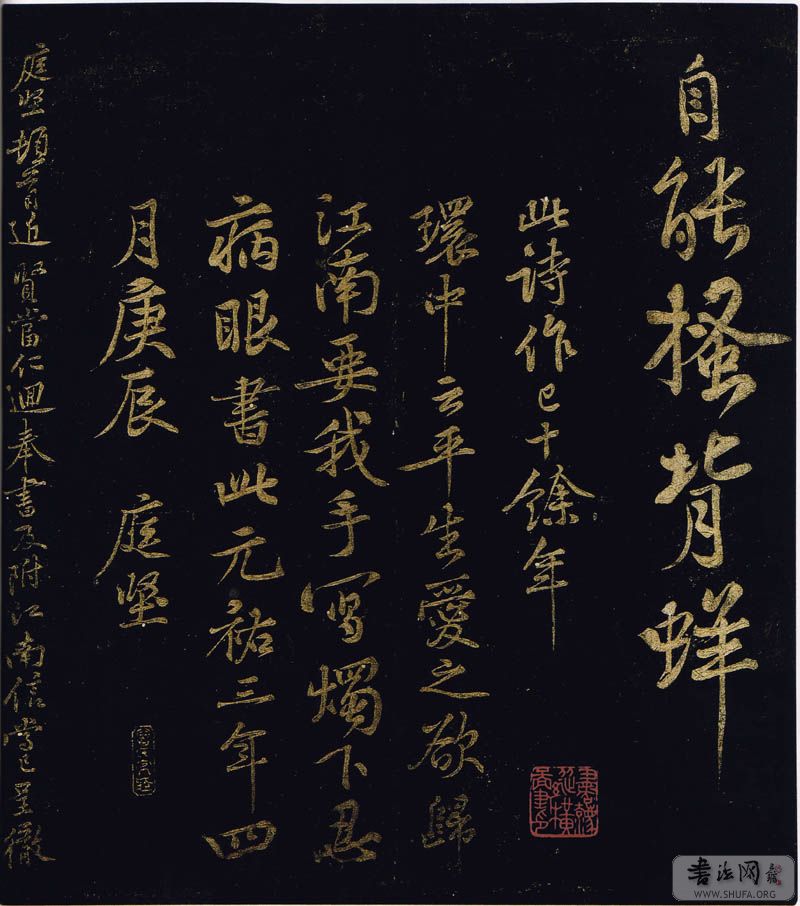 自能搔背蛘
此诗作已十馀年
環中云平生愛之欲歸
江南要我手写燭下忍
病眼書此元祐三年四
月庚辰 庭堅
庭堅頓首近賢當仁迴奉書及附江南信當已呈徹
書法网
WWW.SHUFA.ORG